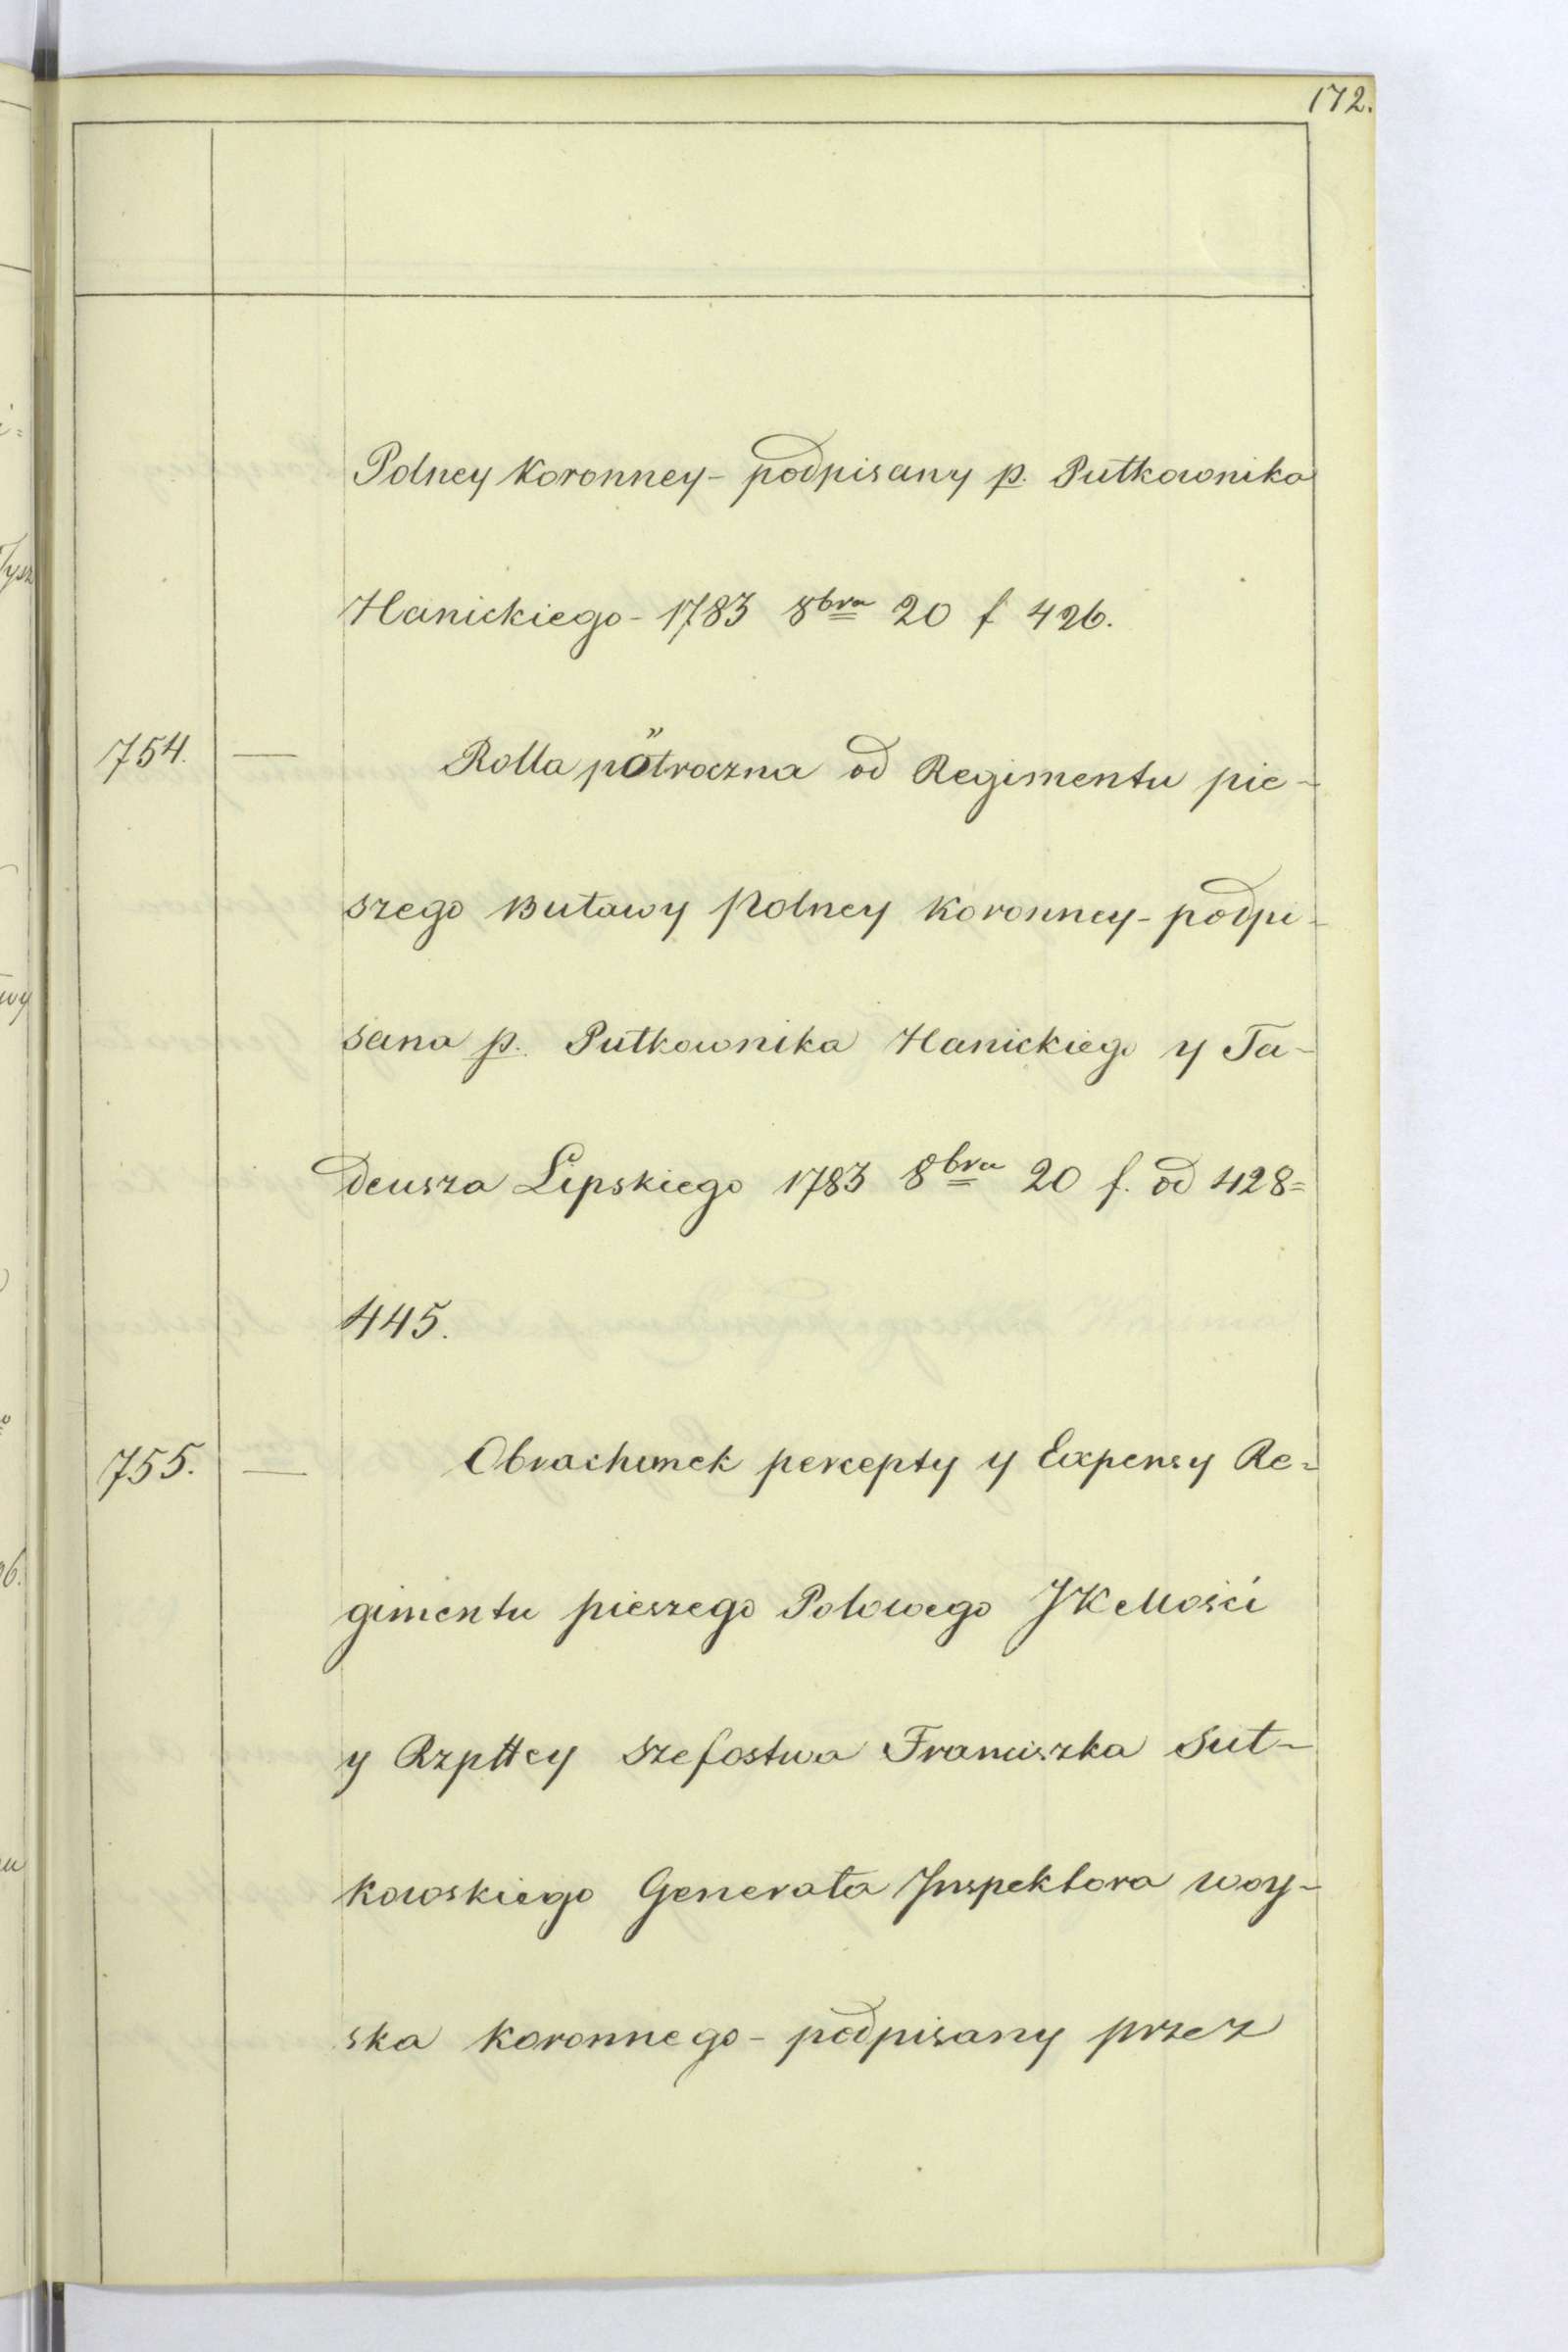 172.
Polney Koronney - podpisany p. Pułkownika
Hanickiego - 1783 8bra 20 f 426.
754. — Rolla pőłroczna od Regimentu pie-
szego Buławy Polney Koronney - podpi-
sana p. Pułkownika Hanickiego y Ta-
deusza Lipskiego 1783 8bra 20 f. od 428=
445.
755. — Obrachunek percepty y Expensy Re=
gimentu pieszego Polowego JKMości
y Rzpttey Szefostwa Franciszka Suł-
kowskiego Generała Inspektora woy-
ska koronnego - podpisany przez